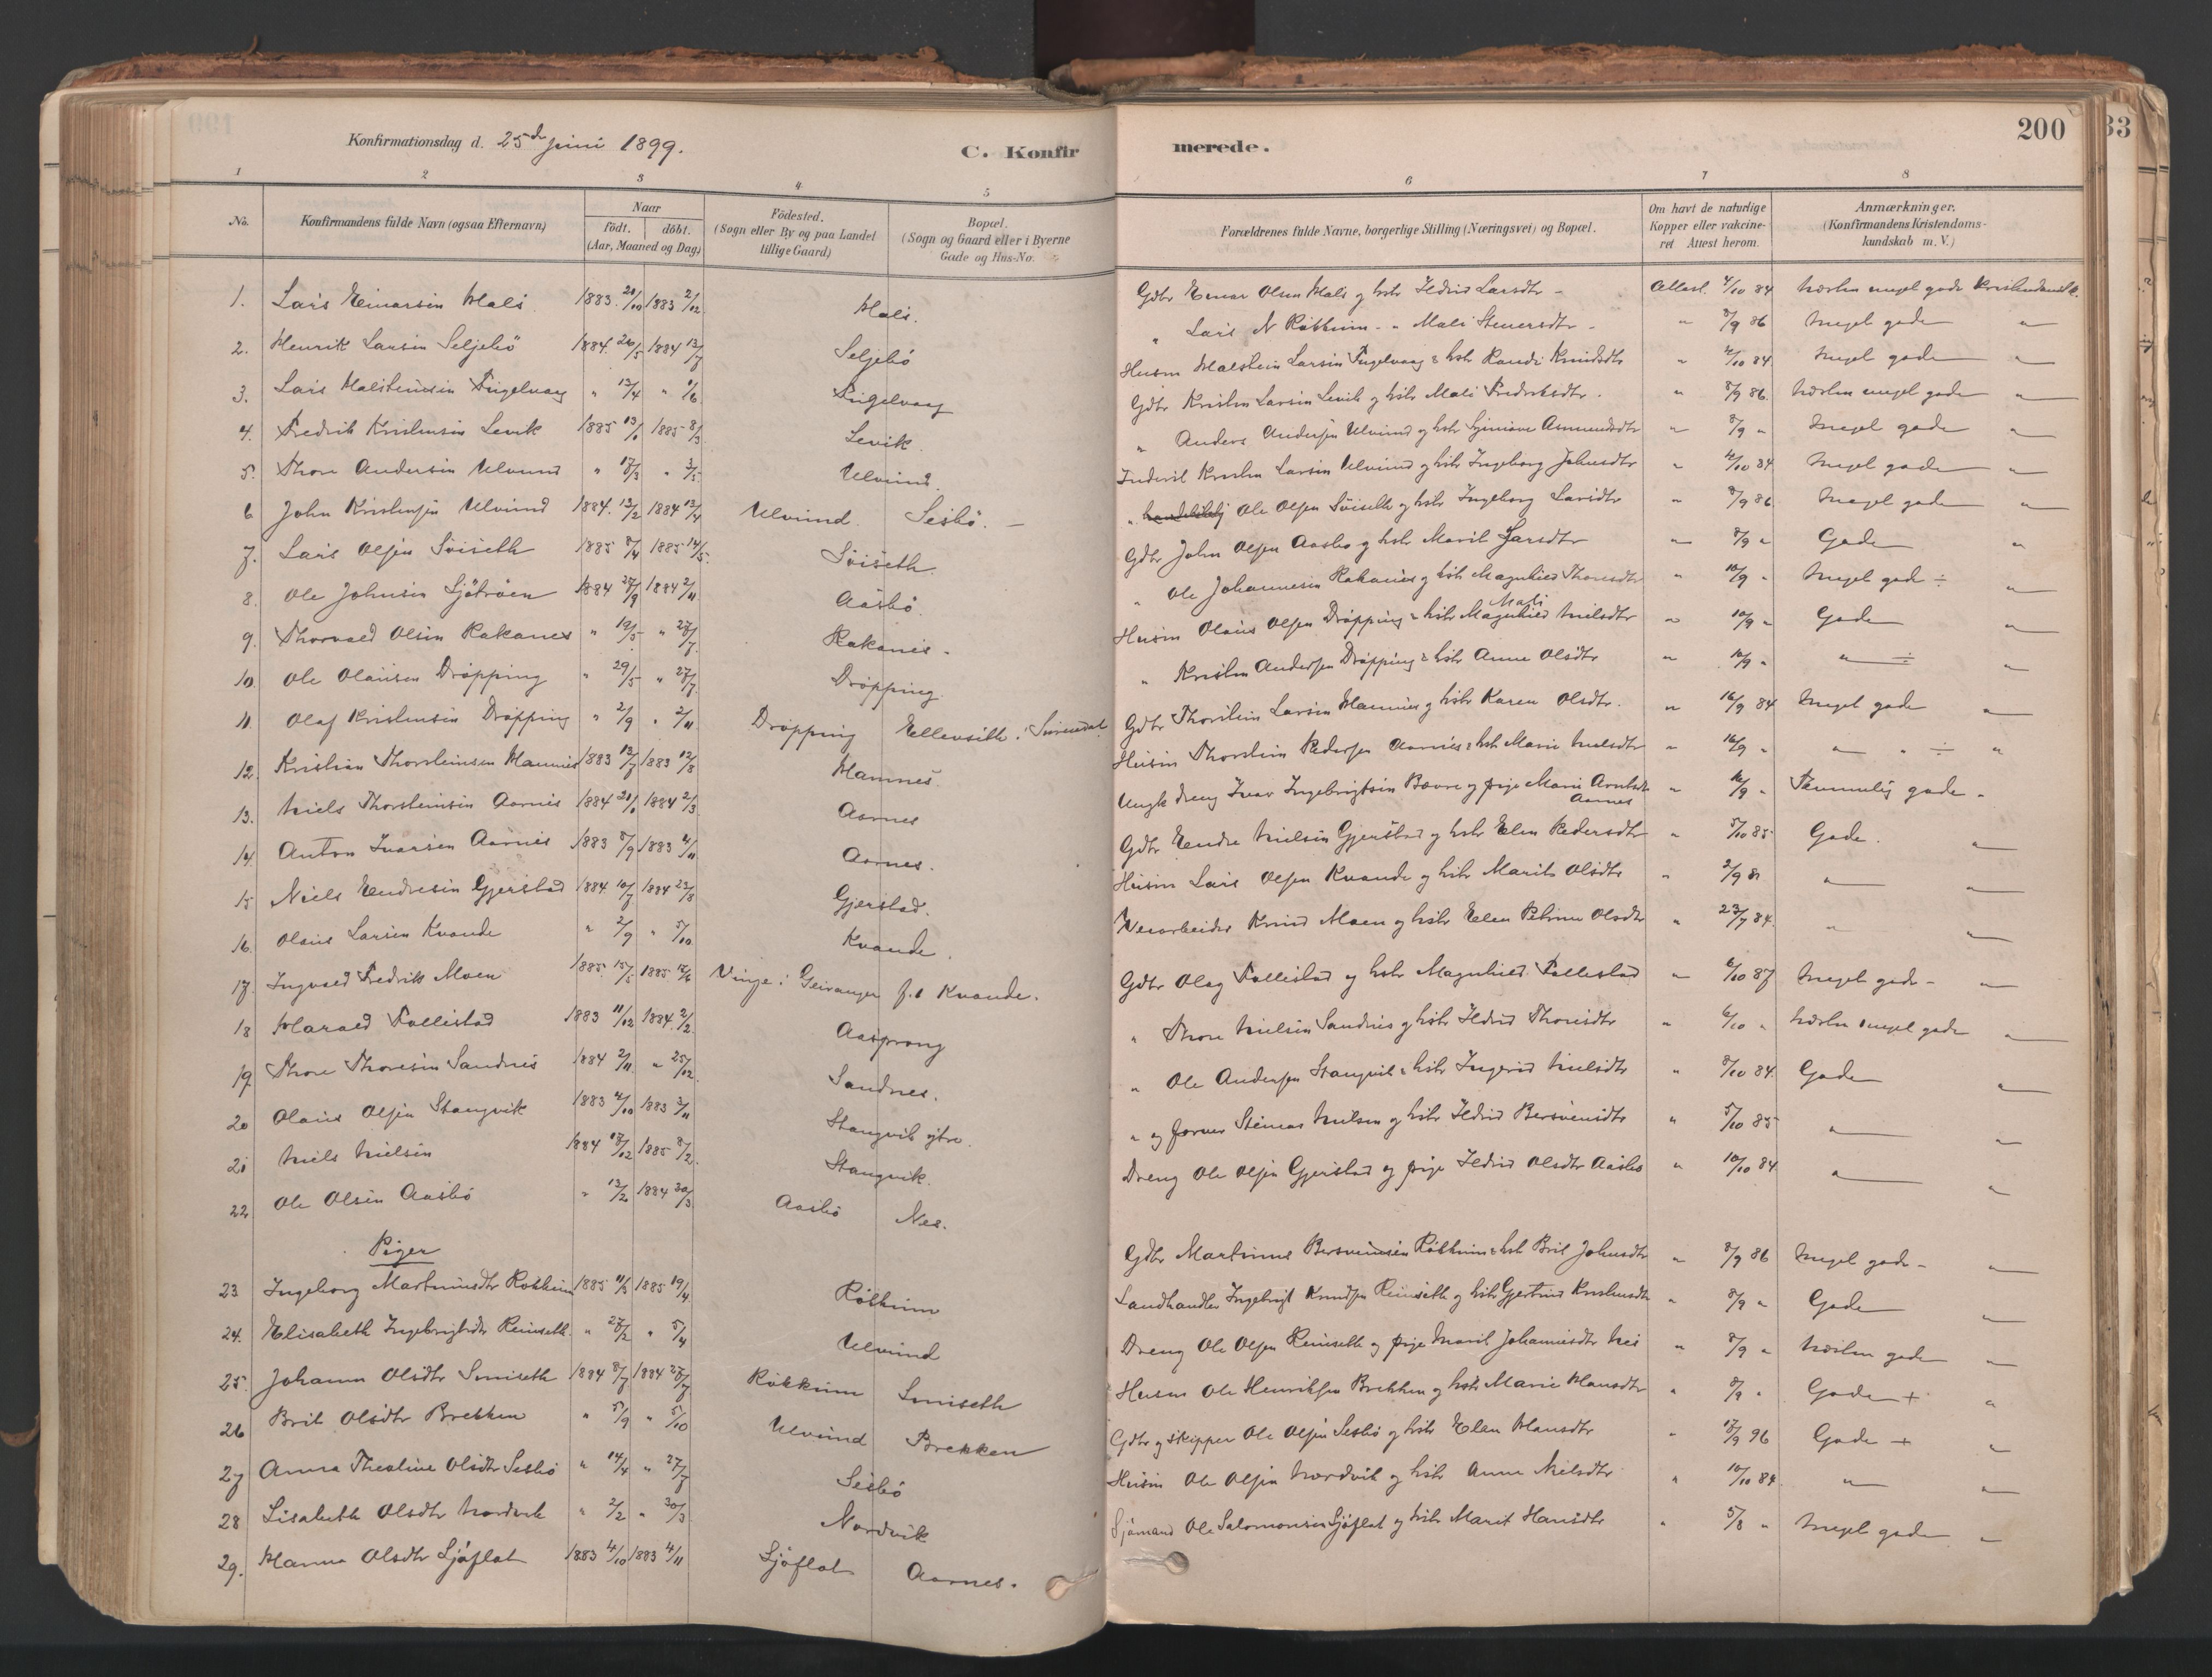 200
Konfirmationsdag d. 25de juni 1899.
C. Konfirmerede.
1 2 3 4 5 6 7 8
No.
Konfirmandens fulde Navn (ogsaa Efternavn)
Naar
født. døbt.
(Aar, Maaned og Dag)
Födested.
(Sogn eller By og paa Landet tillige Gaard)
Bopæl.
(Sogn og Gaard eller i Byerne Gade og Hus-No.
Forældrenes fulde Navne, borgerlige Stilling (Næringsvei) og Bopæl.
Om havt de naturlige Kopper eller vakcineret Attest herom.
Anmærkninger.
(Konfirmandens Kristendomskundskab m. V.)
1. Lars Einarsen Hals 1883 20/10 1883 2/12 Hals. Gdbr Einar Olsen Hals og hstr Ildrid Larsdtr - Attest. 4/10 84 næsten meget gode Kristendomsk.
2. Henrik Larsen Seljebö 1884 26/5 1884 13/7 Seljebö " Lars N Rökkum - " Mali Steuersdtr - " 8/9 86 Meget gode "
3. Lars Halsteinsen Fugelvaag " 13/4 " 1/6 Fugelvaag Husm Halstein Larsen Fugelvaag & hstr Randi Knudsdtr " 4/10 84 Meget gode "
4. Fredrik Kristensen Levik 1885 13/1 1885 8/3 Levik Gdbr Kristen Larsen Levik og hstr Mali Fredriksdtr. " 8/9 86. næsten meget gode "
5. Thore Andersen Ulvund " 17/3 " 3/5 Ulvund " Anders Andersen Ulvund og hstr Synnöve Asmundsdtr " 8/9 " Meget gode "
6 John Kristensen Ulvund 1884. 13/2 1884 13/4 Ulvund. Sesbö. - Inderst Kristen Larsen Ulvund og hstr Ingeborg Johnsdtr " 4/10 84 Meget gode "
7. Lars Olsen Sviseth 1885 8/4 1885 14/5. Sviseth. " Ole Olsen Sviseth og hstr Ingeborg Larsdtr " 8/9 86 Meget gode "
8. Ole Johnsen Sjötröen 1884 27/9 1884 2/11 Aasbö. Gdbr John Olsen Aasbö og hstr Marit Larsdtr " 8/9 " Gode "
9. Thorvald Olsen Rakanes " 19/5 " 27/7 Rakanes. " Ole Johannesen Rakanes og hstr Magnhild Thoresdtr " 10/9 " Meget gode ÷ "
10. Ole Olausen Dröpping " 29/5 " 27/7 Dröpping. Husm Olaus Olsen Dröpping & hstr Magnhild Mali Nielsdtr " 10/9 " Gode "
11 Olaf Kristensen Dröpping " 2/9 " 2/11 Dröpping Ellevsith. Surendal " Kristen Andersen Dröpping & hstr Anne Olsdtr " 10/9 " " ÷ "
12. Kristian Thorsteinsen Hamnes 1883 13/7 1883 12/8 Hamnes. Gdbr Thorstein Larsen Hamnes og hstr Karen Olsdtr. " 16/9 84 Meget gode "
13. Niels Thorsteinsen Aarnes 1884 20/1 1884 2/3 Aarnes Husm Thorstein Pedersen Aarnes & hstr Marie Nielsdtr " 16/9 " " " ÷ "
14. Anton Ivarsen Aarnes 1883 8/9 1883 4/11 Aarnes. Ungk dreng Ivar Ingebrigtsen Bævre og pige Marie Arntsdtr Aarnes " 16/9 " Temmelig gode -
15 Niels Endresen Gjerstad 1884 10/7 1884 23/8 Gjerstad. Gdbr Endre Nielsen Gjerstad og hstr Elen Pedersdtr " 5/10 85 Gode. "
16. Olaus Larsen Kvande " 2/9 " 5/10 Kvande. Husm Lars Olsen Kvande og hstr Marit Olsdtr " "
17. Ingvald Fredrik Moen 1885 15/5 1885 15/6 Vinje i Geiranger f. t. Kvande. Veiarbeider Knud Moen og hstr Elen Petrine Olsdtr " 23/7 84. " "
18 Harald Talleistad 1883 11/12 1884 2/2 Aasprong Gdbr Olag Talleistad og hstr Magnhild Talleistad " 6/10 87 Meget gode - "
19. Thore Thoresen Sandnes 1884 2/11 " 25/12. Sandnes. " Thore Nielsen Sandnes og hstr Ildrid Thoresdtr " 6/10 " næsten meget gode "
20 Olaus Olsen Stangvik 1883 4/10 1883 3/11 Stangvik ytre. " Ole Andersen Stangvik & hstr Ingerid Nielsdtr " 8/10 84. Gode "
21 Niels Nielsen 1884 18/12 1885 8/2 Stangvik. " og forver Steinar Nielsen og hstr Ildrid Bersvensdtr " 5/10 85 " "
22 Ole Olsen Aasbö " 13/2 1884 30/3 Aasbö Nes. Dreng Ole Olsen Gjerstad og pige Ildrid Olsdtr Aasbö " 10/10 84. " "
Piger
23 Ingeborg Martinusdtr Rökkum 1885 11/3 1885 19/4 Rökkum Gdbr Martinus Bersvendsen Rökkum & hstr Brit Johnsdtr " 8/9 86 Meget gode - "
24. Elisabeth Ingebrigtsdtr Reinseth. " 28/2 " 5/4 Ulvund Landhandler Ingebrigt Knudsen Reinseth og hstr Gjertrud Kristensdtr " 8/9 " Gode "
25. Johanna Olsdtr Smiseth 1884 8/7 1884 27/7 Rökkum Smiseth Dreng Ole Olsen Reinseth og pige Marit Johannesdtr Nes " 8/9 " næsten gode "
26 Brit Olsdtr Brekken " 5/9 " 5/10 Ulvund Brekken Husm Ole Henriksen Brekken og hstr Marie Hansdtr " 8/9 " Gode + "
27 Anna Thealine Olsdtr Sesbö " 14/4 " 27/7 Sesbö Gdbr og skipper Ole Olsen Sesbö og hstr Elen Hansdtr " 17/9 96 Gode + "
28 Lisabeth Olsdtr Nordvik " 2/2 " 30/3 Nordvik Husm Ole Olsen Nordvik og hstr Anne Nielsdtr " 10/10 84. " "
29. Hanna Olsdtr Sjöflot 1883 4/10 1883 4/11 Sjöflot Aarnes. Sjömand Ole Salomonsen Sjöflot og hstr Marit Hansdtr " 5/8 " Meget gode "